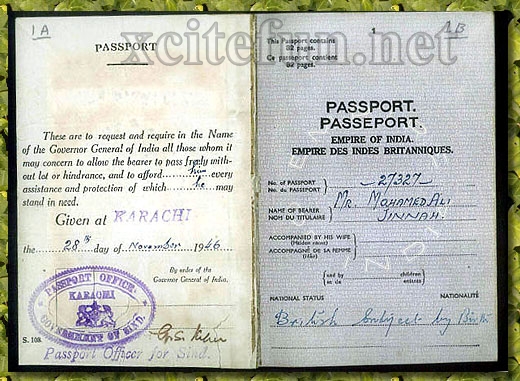 xcitefun.net
1A
PASSPORT
These are to request and require in the Name
of the Governor General of India all those whom it
may concern to allow the bearer to pass freely with-
out let or hindrance, and to afford him every
assistance and protection of which he may
stand in need.
Given at KARACHI
the 28th day of November 1946
By order of the
Governor General of India.
PASSPORT OFFICE.
KARACHI
GOVERNMENT OF SIND.
S. 108.
Passport Officer for Sind.
1
1B
This Passport contains
32 pages.
Ce passeport contient
32 pages.
PASSPORT.
PASSEPORT.
EMPIRE OF INDIA.
EMPIRE DES INDES BRITANNIQUES.
No. of PASSPORT
No. du PASSEPORT
27327
NAME OF BEARER
NOM DU TITULAIRE
Mr. MAHAMED ALI
JINNAH.
ACCOMPANIED BY HIS WIFE
(Maiden name)
ACCOMPAGNÉ DE SA FEMME
(Née)
and by
et de
children
enfants
NATIONAL STATUS
NATIONALITÉ
British Subject by Birth